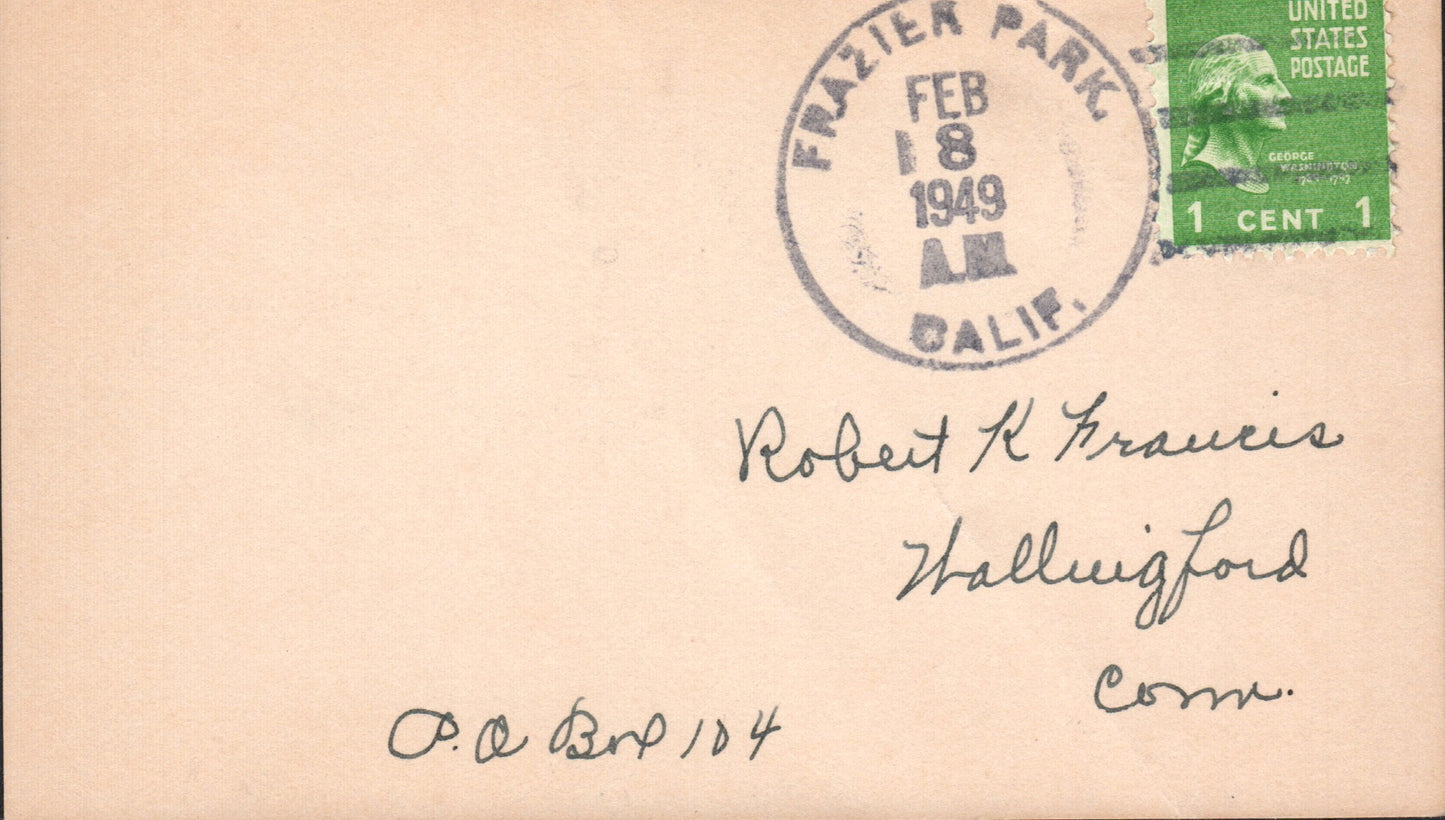 FRAZIER PARK.
FEB
18
1949
A.M.
CALIF.
UNITED
STATES
POSTAGE
GEORGE
WASHINGTON
1 CENT 1
Robert K Francis
Wallingford
Conn.
P.O Box 104